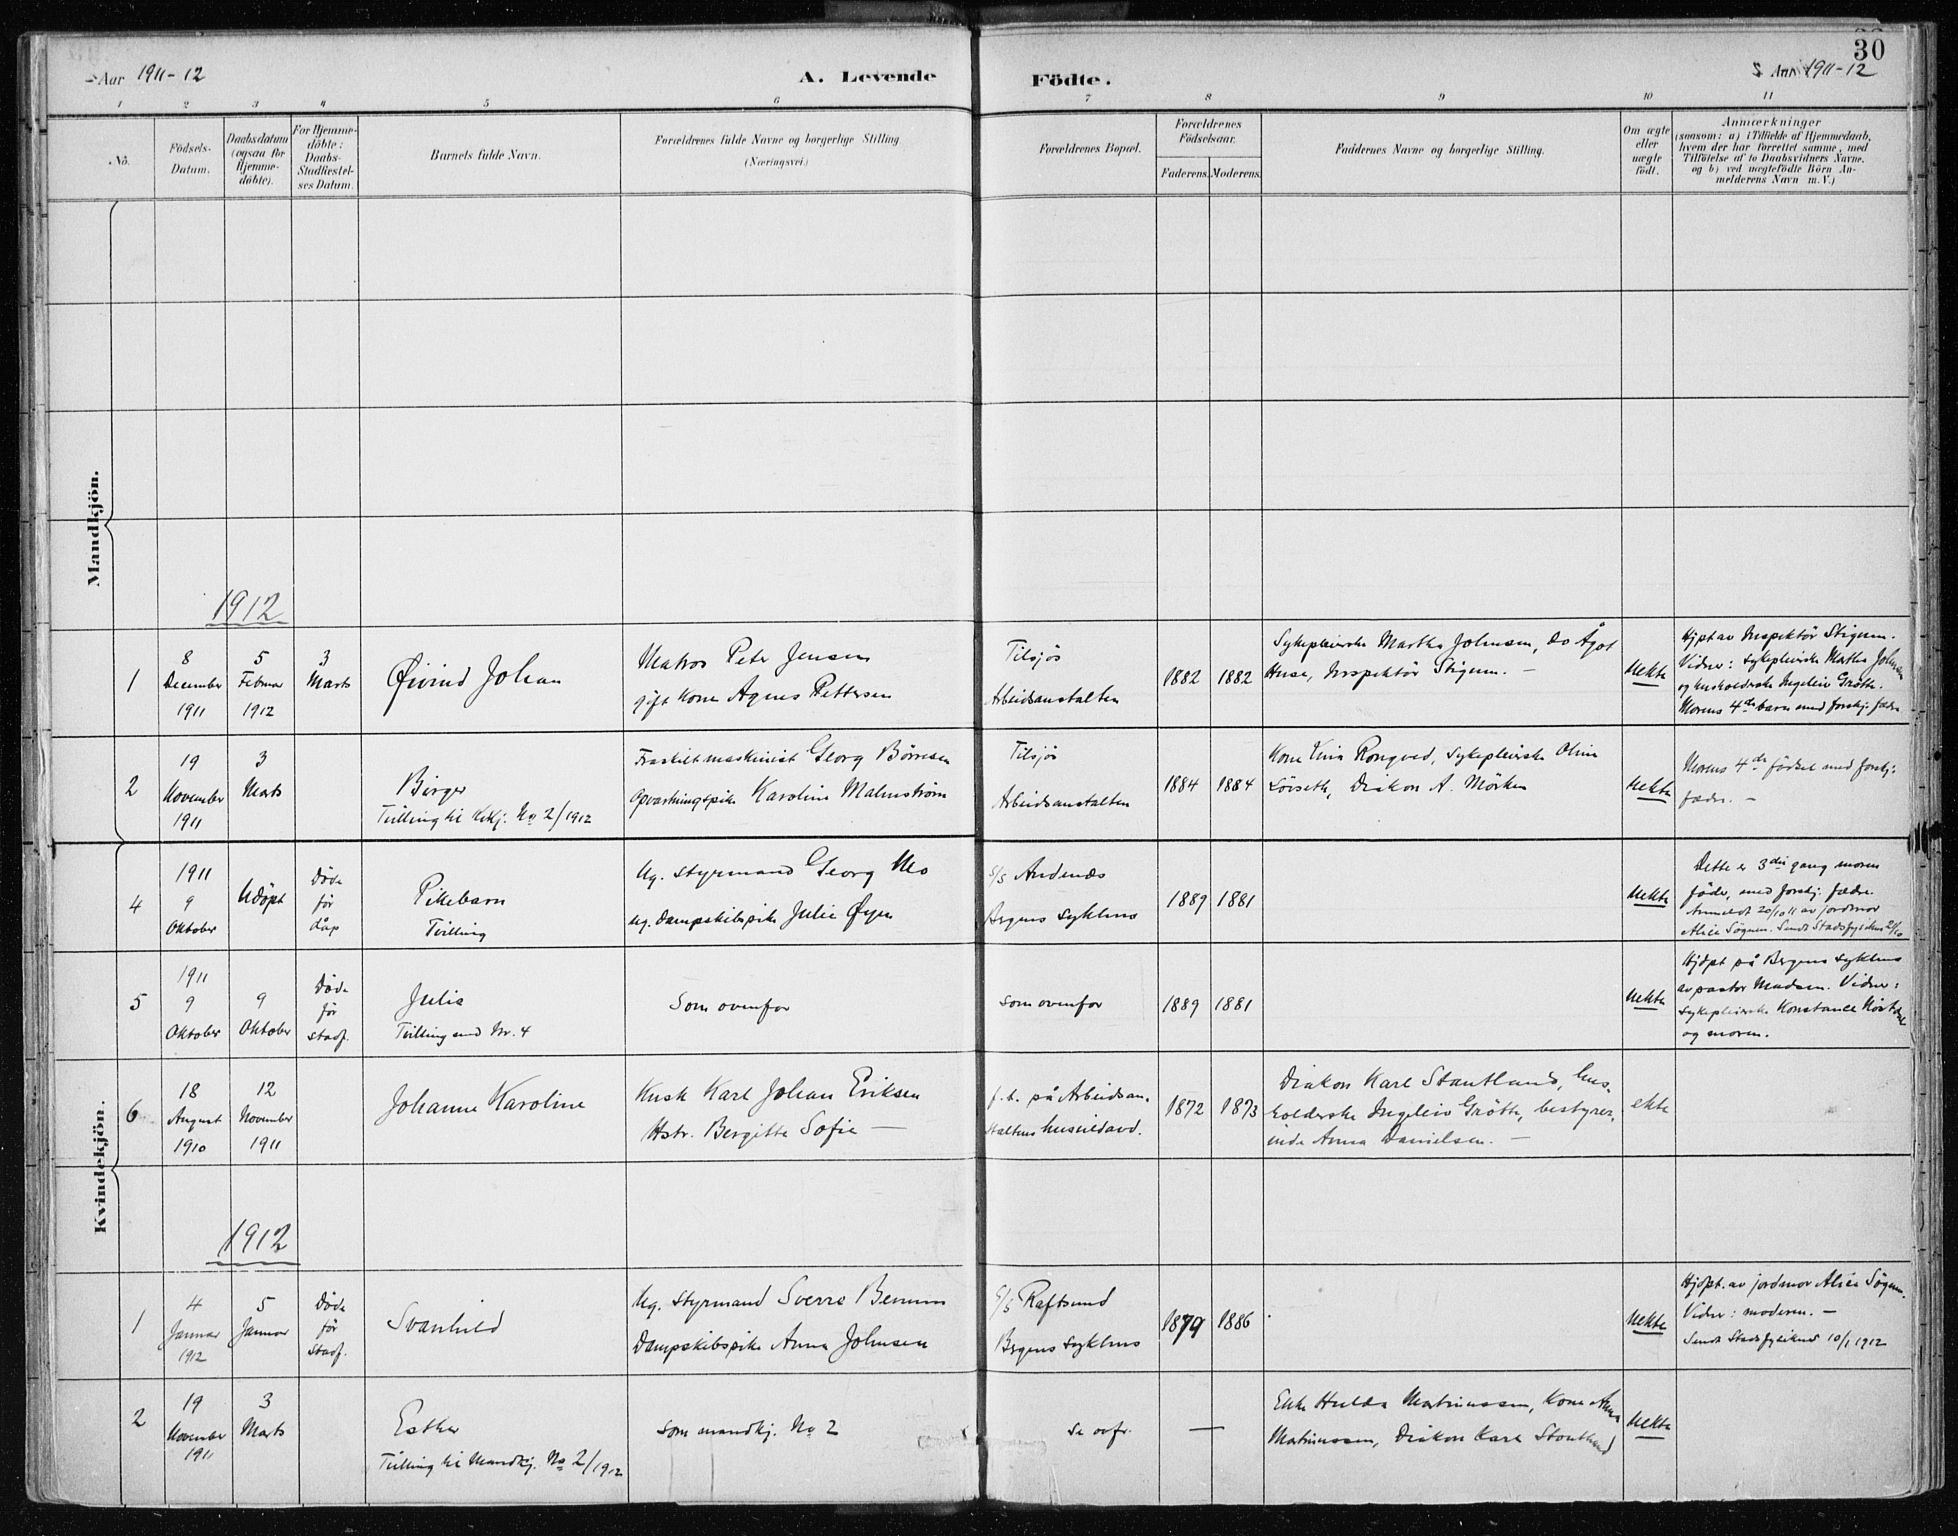 30
Aar 1911-12
A. Levende
Födte.
Aar 1911-12
1 2 3 4 5 6 7 8 9 10 11
No.
Födsels-
Datum.
Daabsdatum
(ogsaa for
Hjemme-
döbte).
For Hjemme-
döbte:
Daabs-
Stadfæstel-
ses Datum.
Barnets fulde Navn.
Forældrenes fulde Navne og borgerlige Stilling
(Næringsvei.)
Forældrenes Bopæl.
Forældrenes
Födselsaar.
Faderens. Moderens.
Faddernes Navne og borgerlige Stilling.
Om ægte
eller
uægte
födt.
Anmærkninger
(saasom: a) i Tilfælde af Hjemmedaab,
hvem der har forrettet samme, med
Tilföielse af to Daabsvidners Navne.
og b) ved uægtefödte Börn An-
melderens Navn m. V.)
Mandkjön.
1912
1
8
December
1911
5
Februar
1912
3
Marts
Øivind Johan
Matros Peter Jensen
gift Kone Agnes Pettersen
Tilsjøs
Arbeidsanstalten
1882 1882
Sykepleierske Martha Johnsen, do Ågot
Huse, Inspektør Stigum. -
Uekte
Hjpt av Inspektør Stigum.
Vidner: Sykepleierske Martha Johnsen
og husholderske Ingeleiv Grøtte.
Morens 4de barn med forskj. fædre
2
19
November
1911
3
Marts
Birger
Tvilling til Kvkj. No 2/1912
Fraskilt maskinist Georg Børresen
Opvartningspike Karoline Malmstrøm
Tilsjøs
Arbeidsanstalten
1884 1884
Kone Lina Rongved, Sykepleierske Oline
Lövseth, Diakon A. Mörken
Uekte
Morens 4de fødsel med forskj.
fædre. -
Kvindekjön.
4
1911
9
Oktober
Udöpt
Döde
för
dåp
Pikebarn
Tvilling
Ug. Styrmand Georg Mo
ug. Dampskibspike Julie Øyen
S/S Andenæs
Bergens Sykehus
1889 1881
Uekte
Dette er 3die gang moren
föder, med forskj. fædre.
Anmeldt 20/10 11 av jordmor
Alice Sögnen. Sendt Stadsfysikus 21/10
5
1911
9
Oktober
9
Oktober
Döde
för
stadf.
Julie
Tvilling med Nr. 4
Som ovenfor
som ovenfor
1889 1881
Uekte
Hjdpt på Bergens Sykehus
av pastor Madsen. Vidner:
sykepleierske Konstance
og moren.
6
18
August
1910
12
November
1911
Johanne Karoline
Kusk Karl Johan Eriksen
Hstr. Bergitte Sofie -
f.t. på Arbeidsan-
staltens husvildavd.
1872 1873
Diakon Karl Stautland, hus-
holderske Ingeleiv Grötte, bestyrer-
inde Anna Danielsen. -
ekte
1912
1
4
Januar
1912
5
Januar
Döde
för
Stadf.
Svanhild
Ug. Styrmand Sverre Benum
Dampskibspike Anna Johnsen
S/S Raftsund
Bergens Sykehus
1879 1886
Uekte
Hjdpt. av jordmor Alice Sögnen.
Vidne: moderen. -
Sendt Stadsfysikus 10/1 1912
2
19
November
1911
3
Marts
Esther
Tvilling til Mandkj. No 2/1912
Som mandkj. No 2
se ovfr. -
Enke Hulda Martinussen, Kone Anna
Martinussen, Diakon Karl Stautland
Uekte